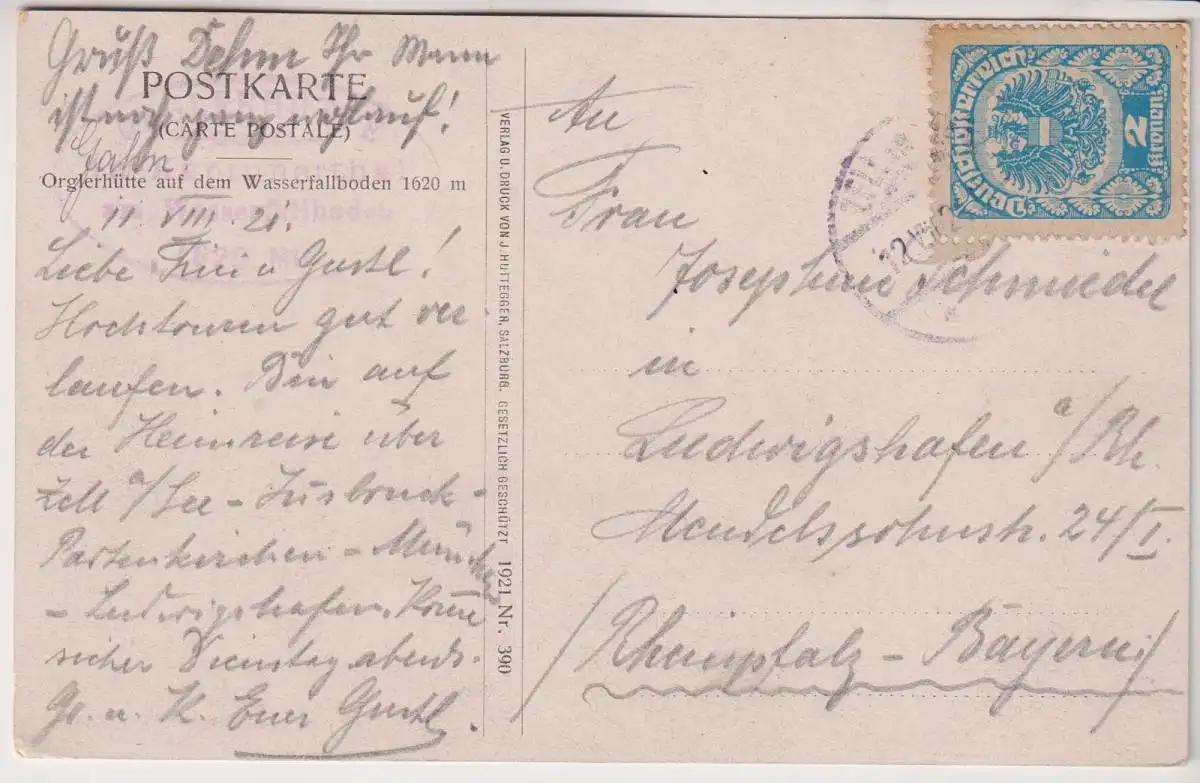 Gruß Dehm Ihr Mann
ist noch ganz wohlauf!
POSTKARTE
(CARTE POSTALE)
Orglerhütte auf dem Wasserfallboden 1620 m
11. VIII. 21.
Liebe Friei u Gustl!
Hochtouren gut ver
laufen. Bin auf
der Heimreise über
Zell a/See – Insbruck –
Partenkirchen – München
– Ludwigshafen. Komme
sicher Dienstag abends.
Gr. u. K. Euer Gustl.
VERLAG U. DRUCK VON J. HUTTEGGER, SALZBURG. GESETZLICH GESCHÜTZT 1921 Nr. 390
An
Frau
Josephine Schmiedel
in
Ludwigshafen a/Rh.
Mendelssohnstr. 24/I.
/Rheinpfalz – Bayern/
Deutschösterreich
2
Kronen
ZELL AM